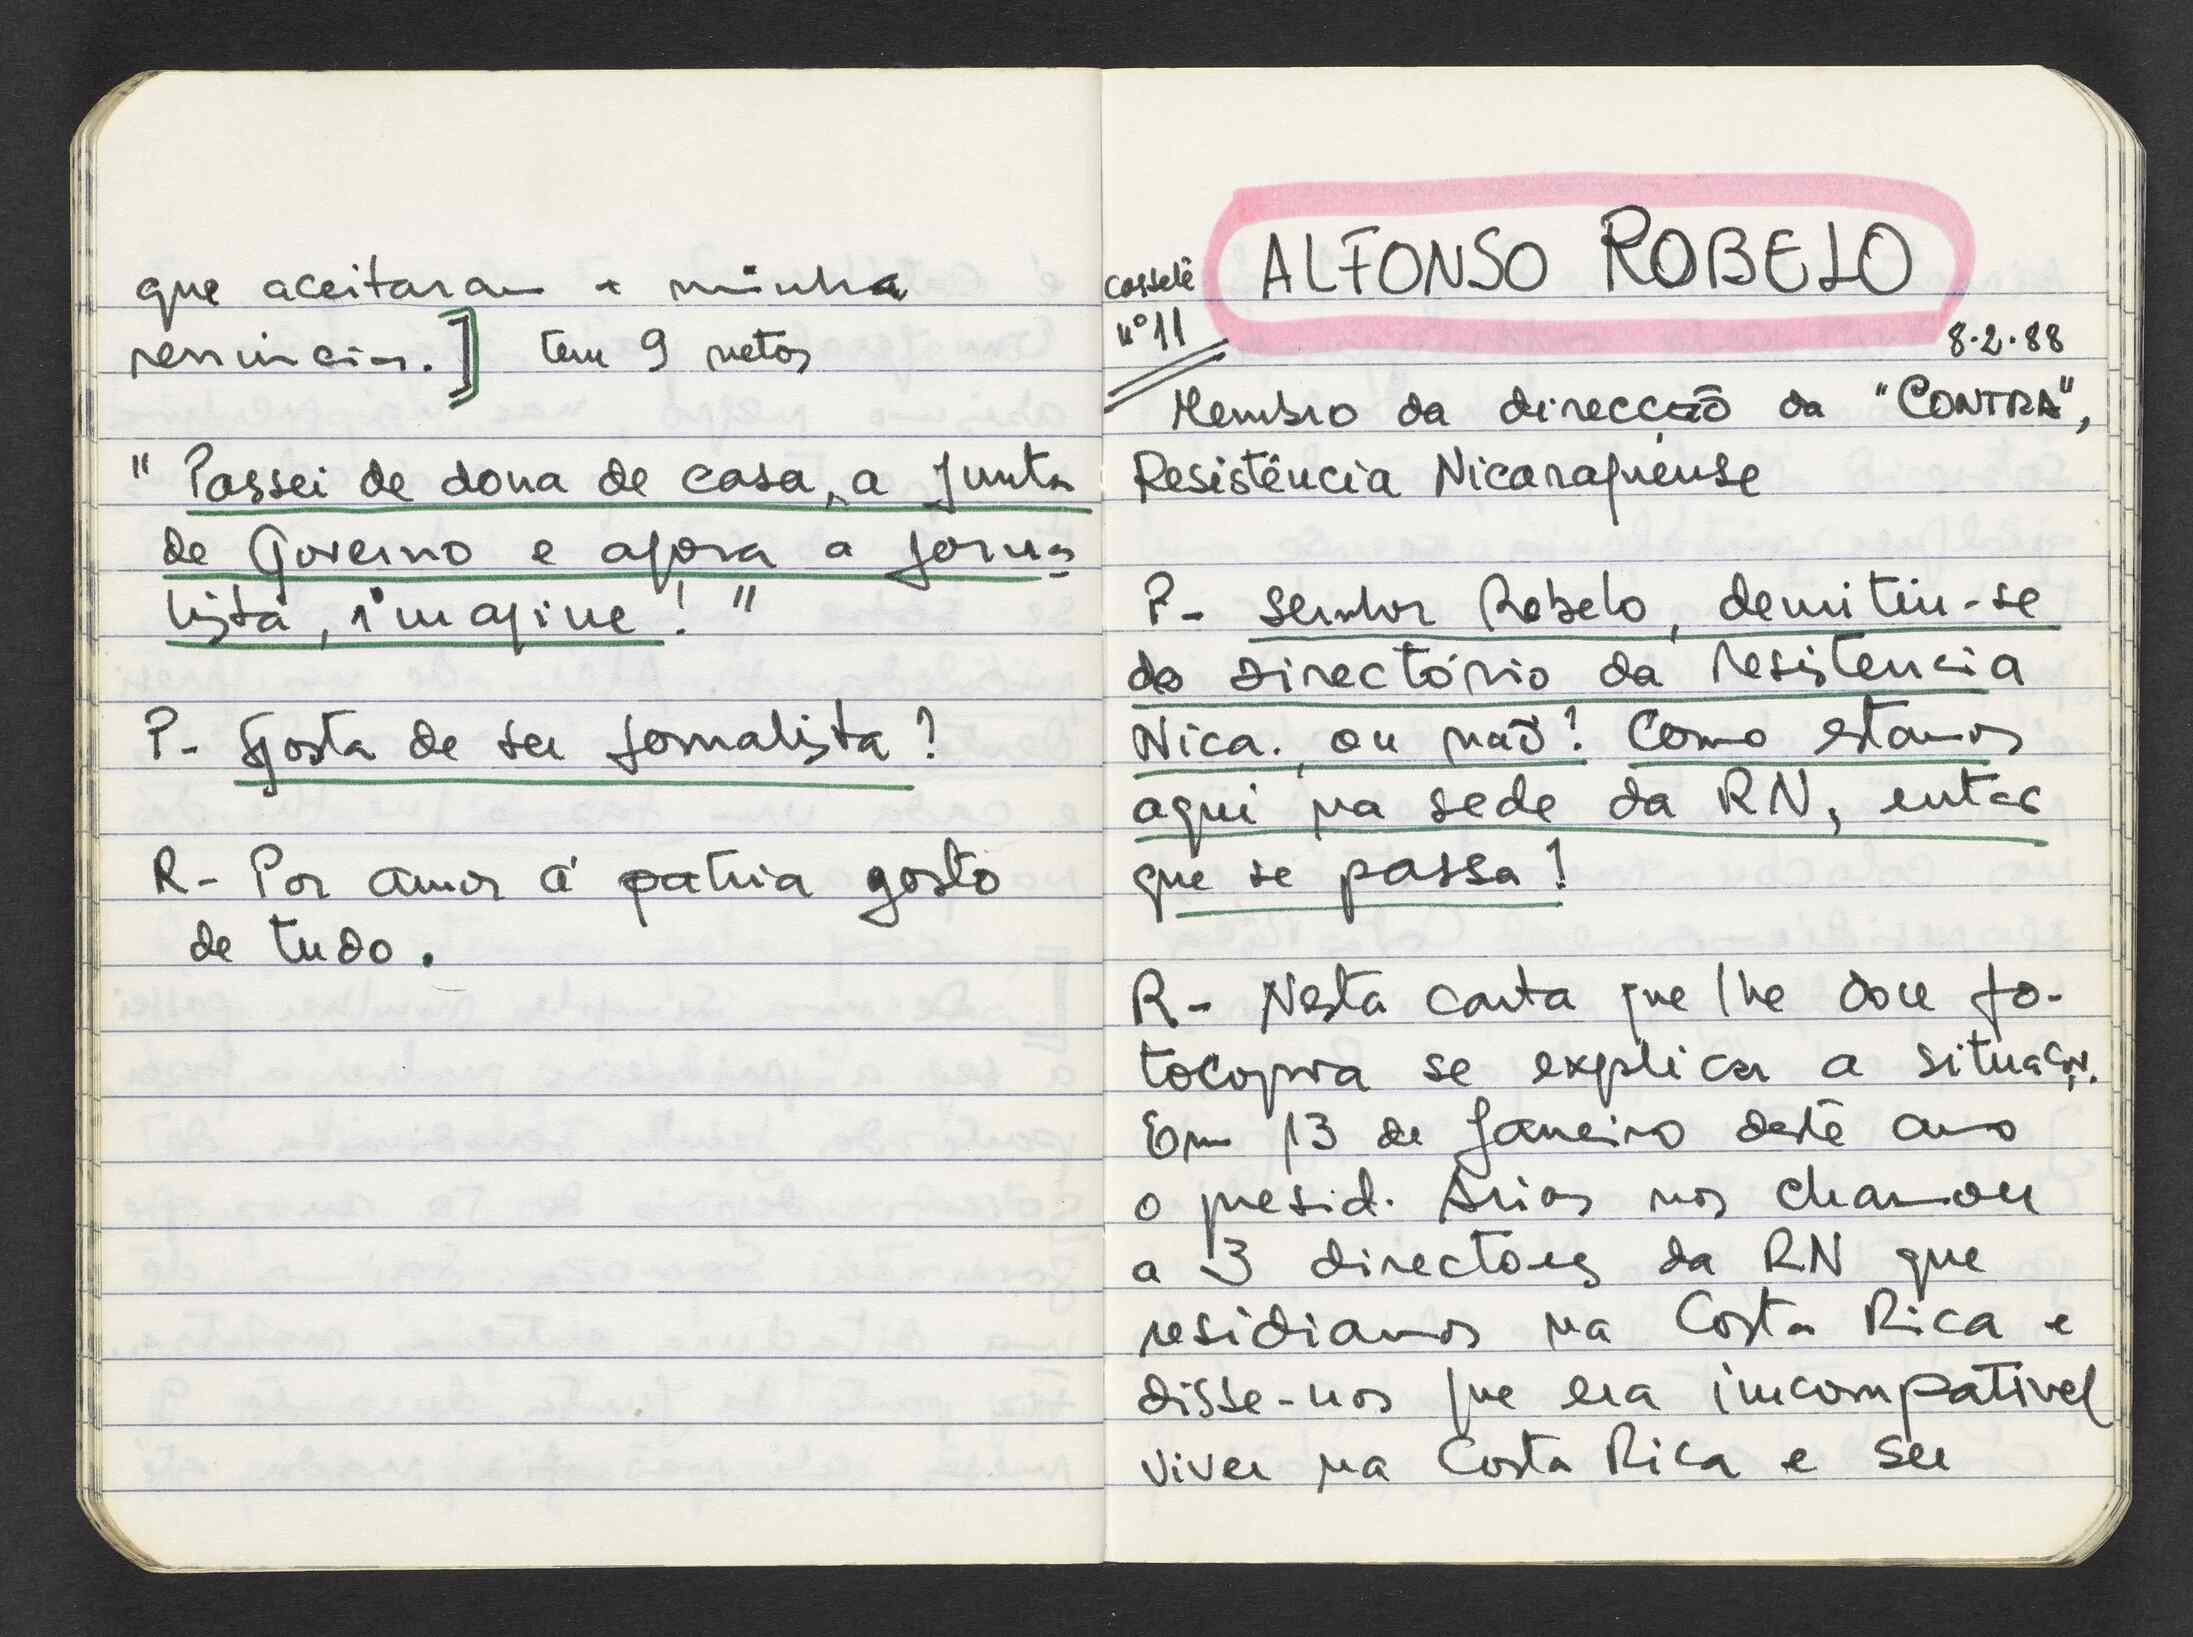 que aceitaram a minha
renúncia.] tem 9 netos
" Passei de dona de casa, a Junta
de Governo e agora a jorna
lista, imagine! "
P- Gosta de ser jornalista?
R- Por amor á patria gosto
de tudo.
ALFONSO ROBELO
cassete
nº 11
8.2.88
Membro da direcção da "CONTRA",
Resistência Nicaraguense
P- Senhor Robelo, demitiu-se
do directório da resistencia
Nica., ou não? Como estamos
aqui na sede da RN, entao
que se passa?
R- Nesta carta que lhe dou fo-
tocopia se explica a situação.
Em 13 de Janeiro deste ano
o presid. Arias nos chamou
a 3 directores da RN que
residiamos na Costa Rica e
disse-nos que era incompativel
viver na Costa Rica e ser